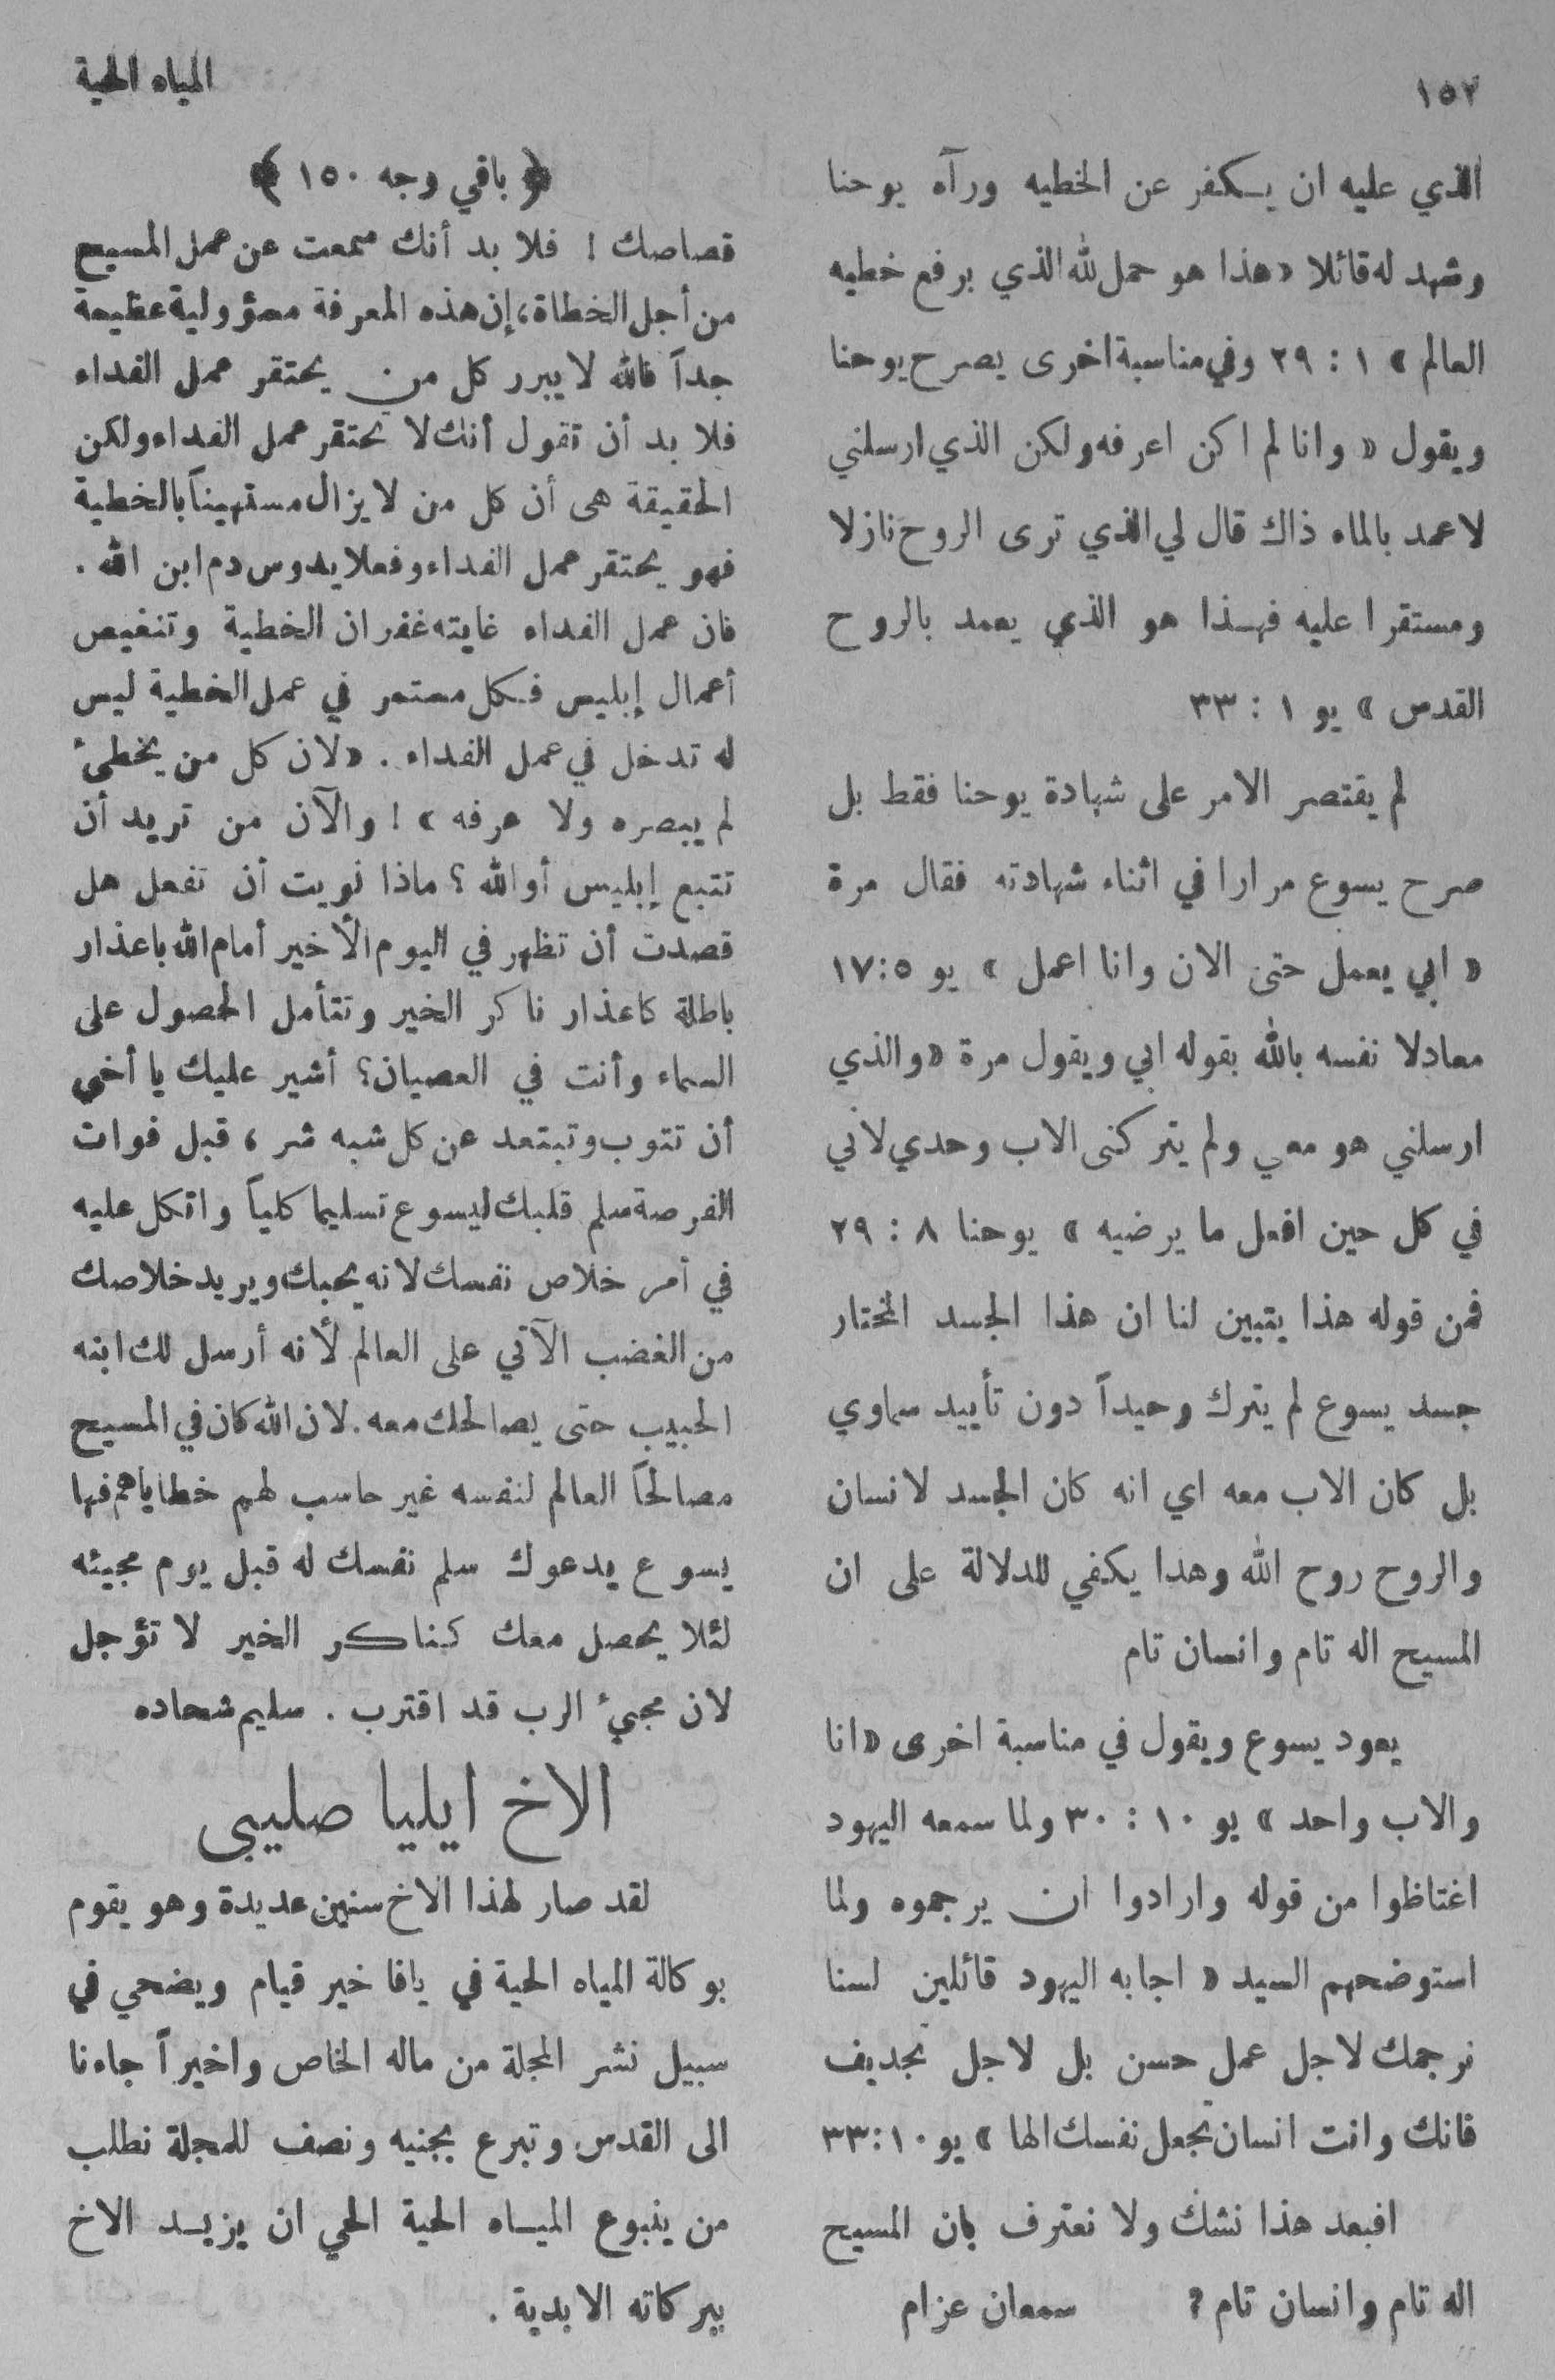 ١٥٢
المياه الحية
الذي عليه ان يكفر عن الخطيه ورآه يوحنا
وشهد له قائلا «هذا هو حمل لله الذي برفع خطيه
العالم » ١ : ٢٩ وفي مناسبة اخرى يصرح يوحنا
ويقول « وانا لم اكن اعرفه ولكن الذي ارسلني
لاعمد بالماء ذاك قال لي الذي ترى الروح نازلا
ومستقرا عليه فهذا هو الذي يعمد بالروح
القدس » يو ١ : ٣٣
لم يقتصر الامر على شهادة يوحنا فقط بل
صرح يسوع مرارا في اثناء شهادته فقال مرة
« ابي يعمل حتى الان وانا اعمل » يو ٥:١٧
معادلا نفسه بالله بقوله ابي ويقول مرة «والذي
ارسلني هو معي ولم يتركنى الاب وحدي لاني
في كل حين افعل ما يرضيه » يوحنا ٨ : ٢٩
فمن قوله هذا يتبين لنا ان هذا الجسد المختار
جسد يسوع لم يترك وحيداً دون تأييد سماوي
بل كان الاب معه اي انه كان الجسد لانسان
والروح روح الله وهدا يكفي للدلالة على ان
المسيح اله تام وانسان تام
يعود يسوع ويقول في مناسبة اخرى «انا
والاب واحد » يو ١٠ : ٣٠ ولما سمعه اليهود
اغتاظوا من قوله وارادوا ان يرجموه ولما
استوضحهم السيد « اجابه اليهود قائلين لسنا
نرجمك لاجل عمل حسن بل لاجل تجديف
فانك وانت انسان تجعل نفسك الها » يو ١٠:٣٣
افبعد هذا نشك ولا نعترف بان المسيح
اله تام وانسان تام ? سمعان عزام
﴿ باقي وجه ١٥٠ ﴾
قصاصك ! فلا بد أنك سمعت عن عمل المسيح
من أجل الخطاة، إن هذه المعرفة مسؤولية عظيمة
جداً فالله لا يبرر كل من يحتقر عمل الفداء
فلا بد أن تقول أنك لا تحتقر عمل الفداء ولكن
الحقيقة هى أن كل من لا يزال مستهيناً بالخطية
فهو يحتقر عمل الفداء وفعلا يدوس دم ابن الله .
فان عمل الفداء غايته غفران الخطية وتنغيص
أعمال إبليس فكل مستمر في عمل الخطية ليس
له تدخل في عمل الفداء . «لان كل من يخطئ
لم يبصره ولا عرفه » ! والآن من تريد أن
تتبع إبليس أو الله ؟ ماذا نويت أن تفعل هل
قصدت أن تظهر في اليوم الأخير أمام الله باعذار
باطلة كاعذار ناكر الخير وتتأمل الحصول على
السماء وأنت في العصيان؟ أشير عليك يا أخي
أن تتوب وتبتعد عن كل شبه شر ، قبل فوات
الفرصة سلم قلبك ليسوع تسليما كلياً واتكل عليه
في أمر خلاص نفسك لانه يحبك ويريد خلاصك
من الغضب الآتي على العالم لأنه أرسل لك ابنه
الحبيب حتى يصالحك معه. لان الله كان في المسيح
مصالحاً العالم لنفسه غير حاسب لهم خطاياهم فها
يسوع يدعوك سلم نفسك له قبل يوم مجيئه
لئلا يحصل معك كناكر الخير لا تؤجل
لان مجيئ الرب قد اقترب . سليم شحاده
الاخ ايليا صليبى
لقد صار لهذا الاخ سنين عديدة وهو يقوم
بوكالة المياه الحية في يافا خير قيام ويضحي في
سبيل نشر المجلة من ماله الخاص واخيراً جاءنا
الى القدس وتبرع بجنيه ونصف للمجلة نطلب
من ينبوع المياه الحية الحي ان يزيد الاخ
ببركاته الابدية .